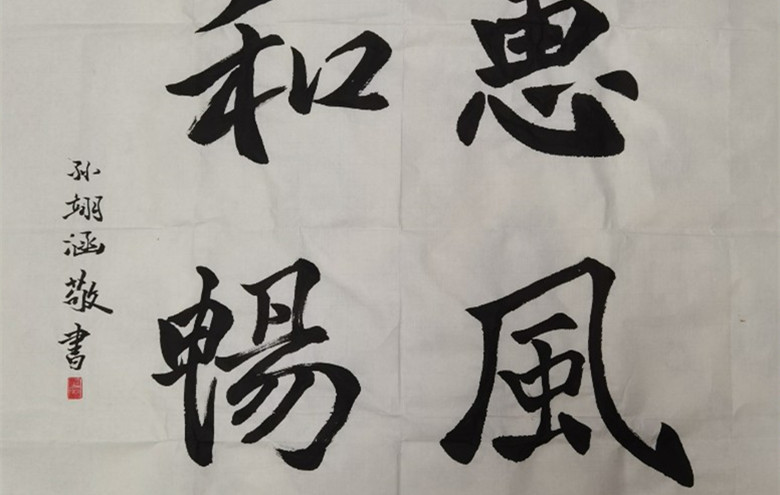 惠風
和暢
孙翊涵敬書